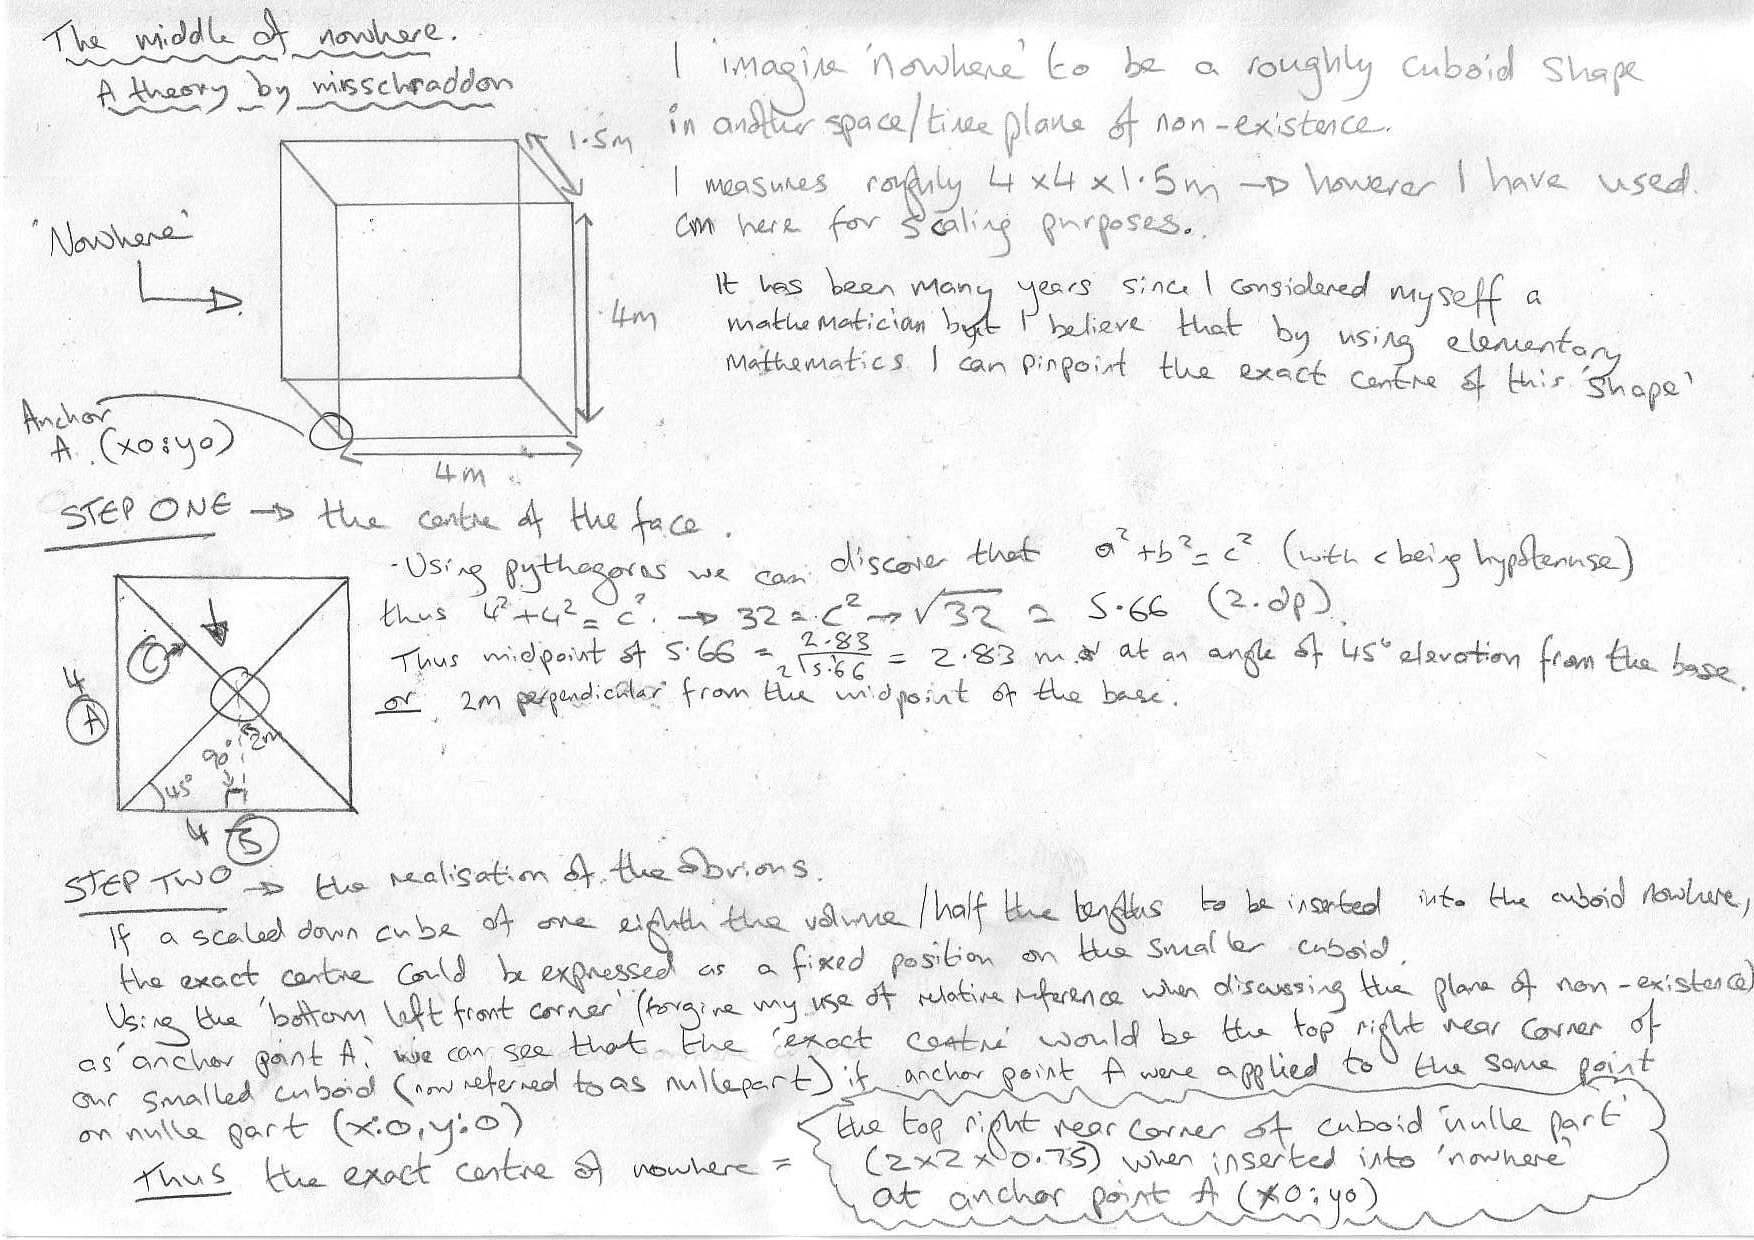 The middle of nowhere.
A theory by misschraddon
I imagine 'nowhere' to be a roughly cuboid shape
in another space/time plane of non-existence.
I measures roughly 4x4x1.5m → however I have used
cm here for scaling purposes.
It has been many years since I considered myself a
mathematician but I believe that by using elementary
mathematics I can pinpoint the exact centre of this 'shape'
1.5m
'Nowhere'
4m
Anchor
A. (x0:y0)
4m
STEP ONE → the centre of the face.
- Using pythagoras we can discover that a²+b²=c² (with c being hypotenuse)
thus 4²+4²=c² → 32=c² → √32 = 5.66 (2.dp)
Thus midpoint of 5.66 = 2.83
2√5.66 = 2.83 m at an angle of 45° elevation from the base
or 2m perpendicular from the midpoint of the base.
C
4
A
2m
90°
45°
4 B
STEP TWO → the realisation of the obvious.
If a scaled down cube of one eighth the volume/half the lengths to be inserted into the cuboid nowhere,
the exact centre could be expressed as a fixed position on the smaller cuboid.
Using the 'bottom left front corner' (forgive my use of relative reference when discussing the plane of non-existence)
as 'anchor point A', we can see that the 'exact centre' would be the top right rear corner of
our smalled cuboid (now referred to as nullepart) if anchor point A were applied to the same point
on nulle part (x:0,y:0)
Thus the exact centre of nowhere =
the top right rear corner of cuboid 'nulle part'
(2x2x0.75) when inserted into 'nowhere'
at anchor point A (x0:y0)